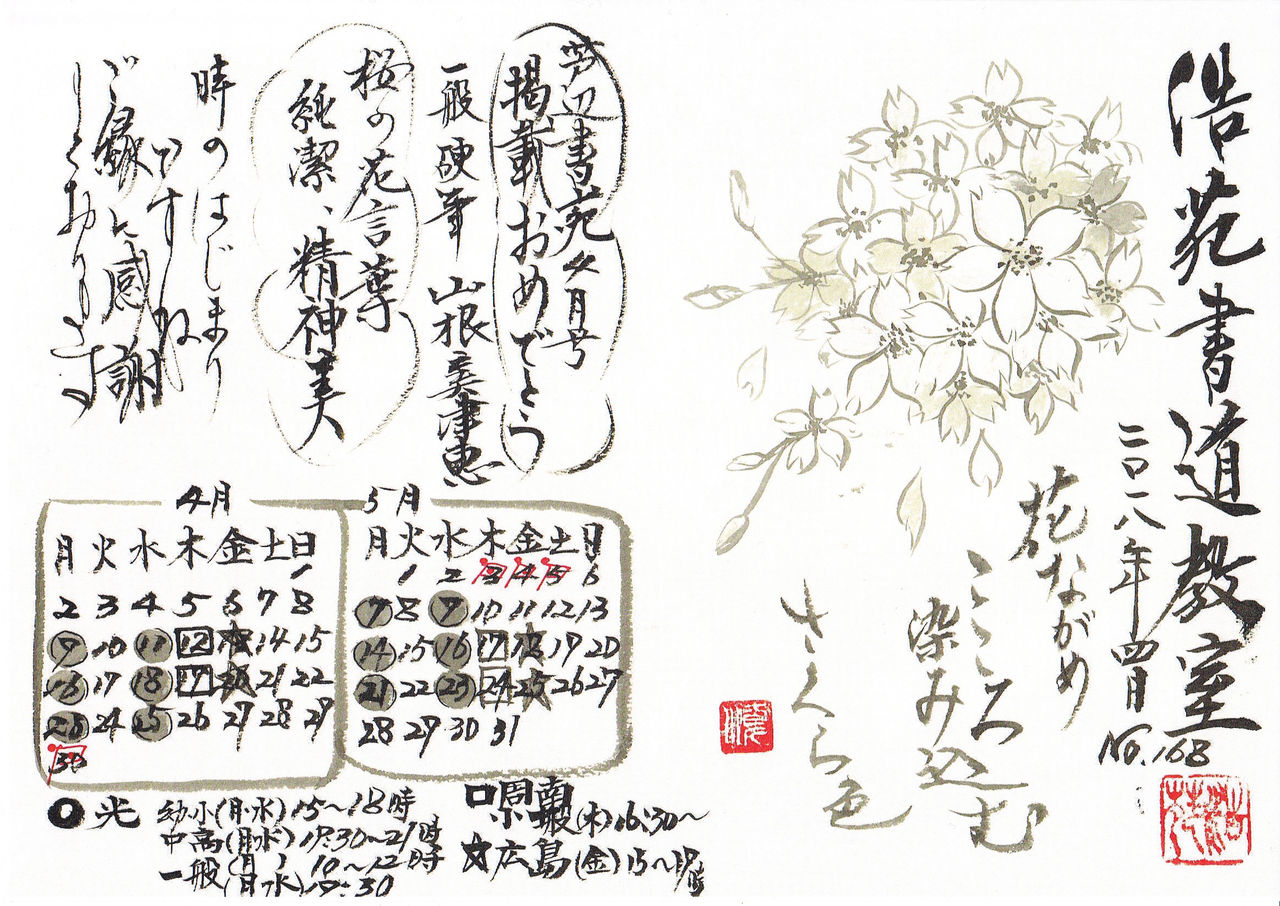 浩苑書道教室
二〇一八年四月
No.168
花ながめ
こころ
染み込む
さくら色
芦辺書苑4月号
掲載おめでとう
一般硬筆 山根美津恵
桜の花言葉
純潔、精神美
時のはじまり
ひすすね
ご縁に感謝
しております
4月
月 火 水 木 金 土 日
1
2 3 4 5 6 7 8
9 10 11 12 13 14 15
16 17 18 19 20 21 22
23 24 25 26 27 28 29
30
5月
月 火 水 木 金 土 日
1 2 3 4 5 6
7 8 9 10 11 12 13
14 15 16 17 18 19 20
21 22 23 24 25 26 27
28 29 30 31
○光 幼小(月・水)15~18時
中高(月・水)17:30~21時
一般(月)10~12時
(月・水)17:30
□周南(木)16:30~
☆広島(金)15~17時